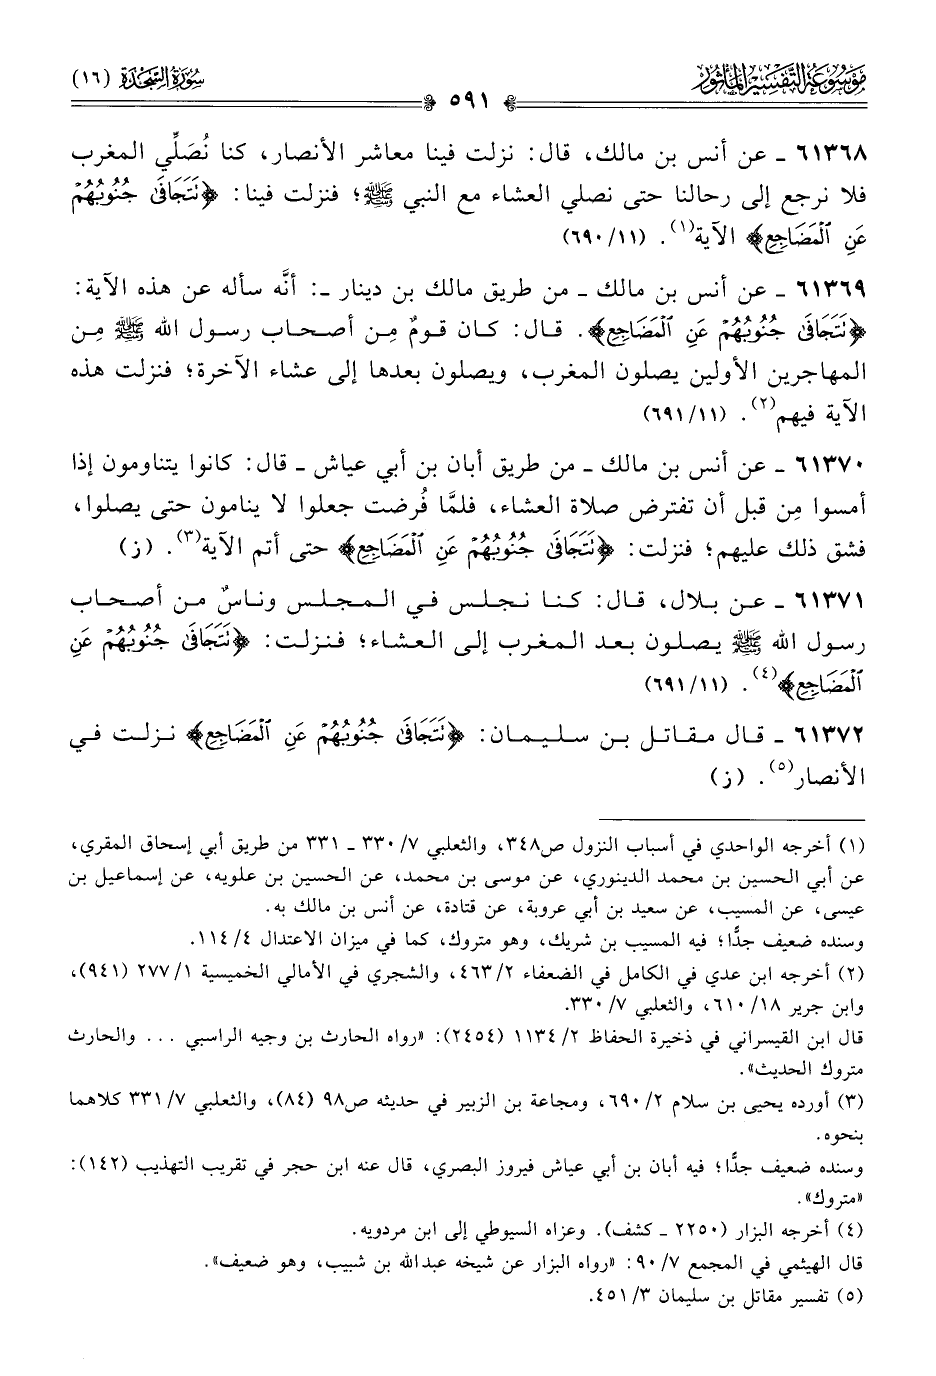 موسوعة التفسير المأثور
سورة السجدة (١٦)
٥٩١
٦١٣٦٨ ـ عن أنس بن مالك، قال: نزلت فينا معاشر الأنصار، كنا نُصَلِّي المغرب
فلا نرجع إلى رحالنا حتى نصلي العشاء مع النبي ﷺ؛ فنزلت فينا: ﴿نَتَجَافَىٰ جُنُوبُهُمْ
عَنِ ٱلْمَضَاجِعِ﴾ الآية(١). (١١/ ٦٩٠)
٦١٣٦٩ ـ عن أنس بن مالك ـ من طريق مالك بن دينار ـ: أنَّه سأله عن هذه الآية:
﴿نَتَجَافَىٰ جُنُوبُهُمْ عَنِ ٱلْمَضَاجِعِ﴾. قال: كان قومٌ مِن أصحاب رسول الله ﷺ مِن
المهاجرين الأولين يصلون المغرب، ويصلون بعدها إلى عشاء الآخرة؛ فنزلت هذه
الآية فيهم(٢). (١١/ ٦٩١)
٦١٣٧٠ ـ عن أنس بن مالك ـ من طريق أبان بن أبي عياش ـ قال: كانوا يتناومون إذا
أمسوا مِن قبل أن تفترض صلاة العشاء، فلمَّا فُرضت جعلوا لا ينامون حتى يصلوا،
فشق ذلك عليهم؛ فنزلت: ﴿نَتَجَافَىٰ جُنُوبُهُمْ عَنِ ٱلْمَضَاجِعِ﴾ حتى أتم الآية(٣). (ز)
٦١٣٧١ ـ عن بلال، قال: كنا نجلس في المجلس وناسٌ من أصحاب
رسول الله ﷺ يصلون بعد المغرب إلى العشاء؛ فنزلت: ﴿نَتَجَافَىٰ جُنُوبُهُمْ عَنِ
ٱلْمَضَاجِعِ﴾(٤). (١١/ ٦٩١)
٦١٣٧٢ ـ قال مقاتل بن سليمان: ﴿نَتَجَافَىٰ جُنُوبُهُمْ عَنِ ٱلْمَضَاجِعِ﴾ نزلت في
الأنصار(٥). (ز)
(١) أخرجه الواحدي في أسباب النزول ص٣٤٨، والثعلبي ٧/ ٣٣٠ ـ ٣٣١ من طريق أبي إسحاق المقري،
عن أبي الحسين بن محمد الدينوري، عن موسى بن محمد، عن الحسين بن علويه، عن إسماعيل بن
عيسى، عن المسيب، عن سعيد بن أبي عروبة، عن قتادة، عن أنس بن مالك به.
وسنده ضعيف جدًّا؛ فيه المسيب بن شريك، وهو متروك، كما في ميزان الاعتدال ٤/ ١١٤.
(٢) أخرجه ابن عدي في الكامل في الضعفاء ٢/ ٤٦٣، والشجري في الأمالي الخميسية ١/ ٢٧٧ (٩٤١)،
وابن جرير ١٨/ ٦١٠، والثعلبي ٧/ ٣٣٠.
قال ابن القيسراني في ذخيرة الحفاظ ٢/ ١١٣٤ (٢٤٥٤): «رواه الحارث بن وجيه الراسبي ... والحارث
متروك الحديث».
(٣) أورده يحيى بن سلام ٢/ ٦٩٠، ومجاعة بن الزبير في حديثه ص٩٨ (٨٤)، والثعلبي ٧/ ٣٣١ كلاهما
بنحوه.
وسنده ضعيف جدًّا؛ فيه أبان بن أبي عياش فيروز البصري، قال عنه ابن حجر في تقريب التهذيب (١٤٢):
«متروك».
(٤) أخرجه البزار (٢٢٥٠ ـ كشف). وعزاه السيوطي إلى ابن مردويه.
قال الهيثمي في المجمع ٧/ ٩٠: «رواه البزار عن شيخه عبدالله بن شبيب، وهو ضعيف».
(٥) تفسير مقاتل بن سليمان ٣/ ٤٥١.